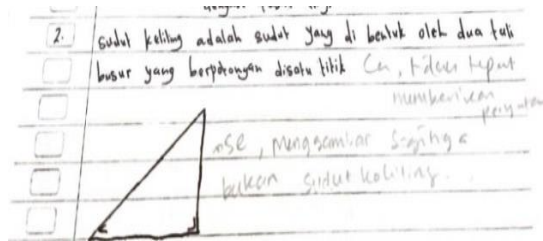 2. sudut keliling adalah sudut yang di bentuk oleh dua tali
busur yang berpotongan disatu titik Ca, tidak tepat
memberikan
pernyataan
se, menggambar segitiga
bukan sudut keliling...